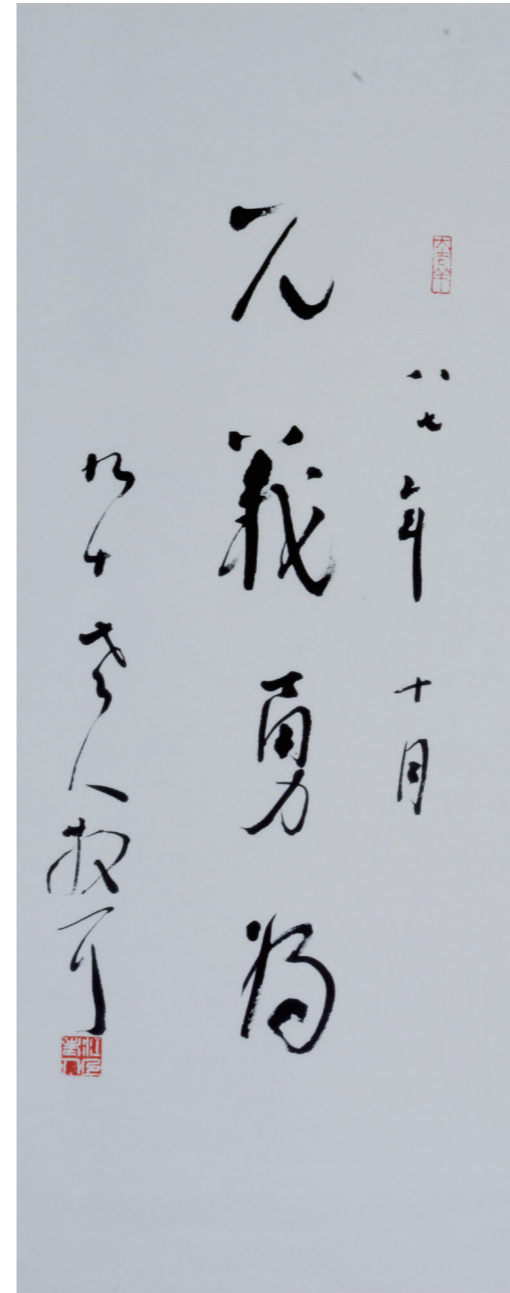 八七年十月
见義勇為
九十老人散耳